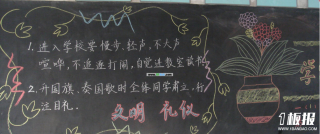 1. 进入学校要慢步、轻声,不大声
喧哗,不追逐打闹,自觉进教室读书。
2. 升国旗、奏国歌时全体同学肃立,行
注目礼。
文明 礼仪
1板报